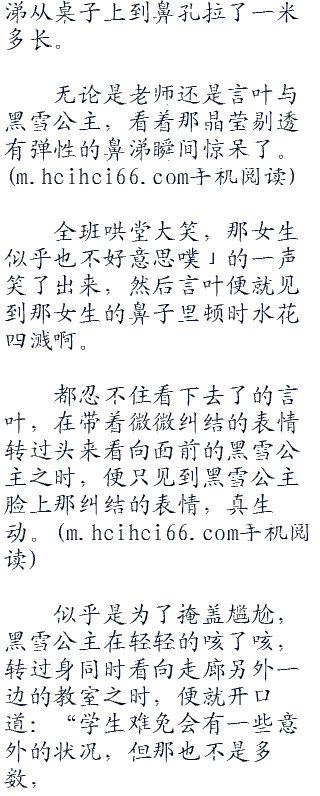 涕从桌子上到鼻孔拉了一米
多长。
无论是老师还是言叶与
黑雪公主，看着那晶莹剔透
有弹性的鼻涕瞬间惊呆了。
(m.hcihci66.com手机阅读)
全班哄堂大笑，那女生
似乎也不好意思噗」的一声
笑了出来，然后言叶便就见
到那女生的鼻子里顿时水花
四溅啊。
都忍不住看下去了的言
叶，在带着微微纠结的表情
转过头来看向面前的黑雪公
主之时，便只见到黑雪公主
脸上那纠结的表情，真生
动。(m.hcihci66.com手机阅
读)
似乎是为了掩盖尴尬，
黑雪公主在轻轻的咳了咳，
转过身同时看向走廊另外一
边的教室之时，便就开口
道：“学生难免会有一些意
外的状况，但那也不是多
数，